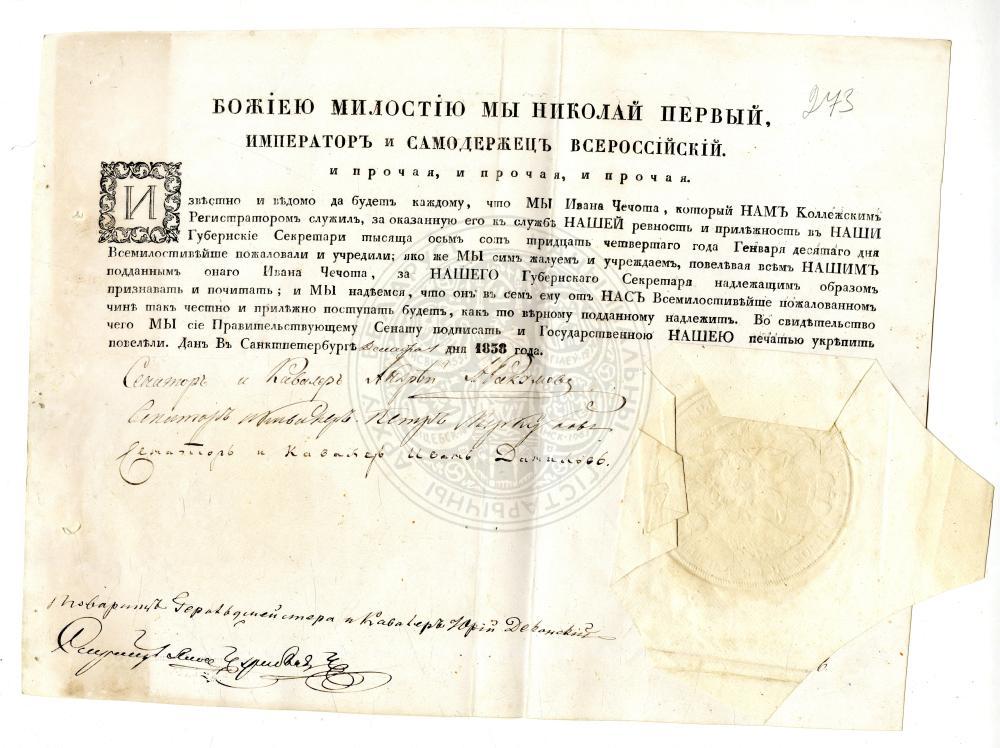 273
БОЖІЕЮ МИЛОСТІЮ МЫ НИКОЛАЙ ПЕРВЫЙ,
ИМПЕРАТОРЪ И САМОДЕРЖЕЦЪ ВСЕРОССІЙСКІЙ.
и прочая, и прочая, и прочая.
Извѣстно и вѣдомо да будетъ каждому, что МЫ Ивана Чечота, который НАМЪ Коллежскимъ
Регистраторомъ служилъ, за оказанную его къ службѣ НАШЕЙ ревность и прилѣжность въ НАШИ
Губернскіе Секретари тысяща осьмъ сотъ тридцать четвертаго года Генваря десятаго дня
Всемилостивѣйше пожаловали и учредили; яко же МЫ симъ жалуемъ и учреждаемъ, повелѣвая всѣмъ НАШИМЪ
подданнымъ онаго Ивана Чечота, за НАШЕГО Губернскаго Секретаря надлежащимъ образомъ
признавать и почитать; и МЫ надѣемся, что онъ въ семъ ему отъ НАСЪ Всемилостивѣйше пожалованномъ
чинѣ такъ честно и прилѣжно поступать будетъ, какъ то вѣрному подданному надлежитъ. Во свидѣтельство
чего МЫ сіе Правительствующему Сенату подписать и Государственною НАШЕЮ печатью укрѣпить
повелѣли. Данъ Въ Санктпетербургѣ дня 1838 года.
Сенаторъ и Кавалеръ Андрей
Сенаторъ и Кавалеръ Петръ
Сенаторъ и Кавалеръ Иванъ Даниловъ.
Товарищъ Герольдмейстера и Кавалеръ Юрій